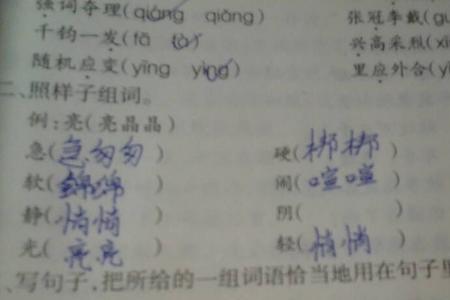 强词夺理(qiáng qiǎng) 张冠李戴(gu
千钧一发(fā fà) 兴高采烈(xī
随机应变(yīng yìng) 里应外合(y
二、照样子组词。
例:亮(亮晶晶)
急(急匆匆) 硬(梆梆)
软(绵绵) 闹(喧喧)
静(悄悄) 阴( )
光(亮亮) 轻(悄悄)
、写句子,把所给的一组词语恰当地用在句子里